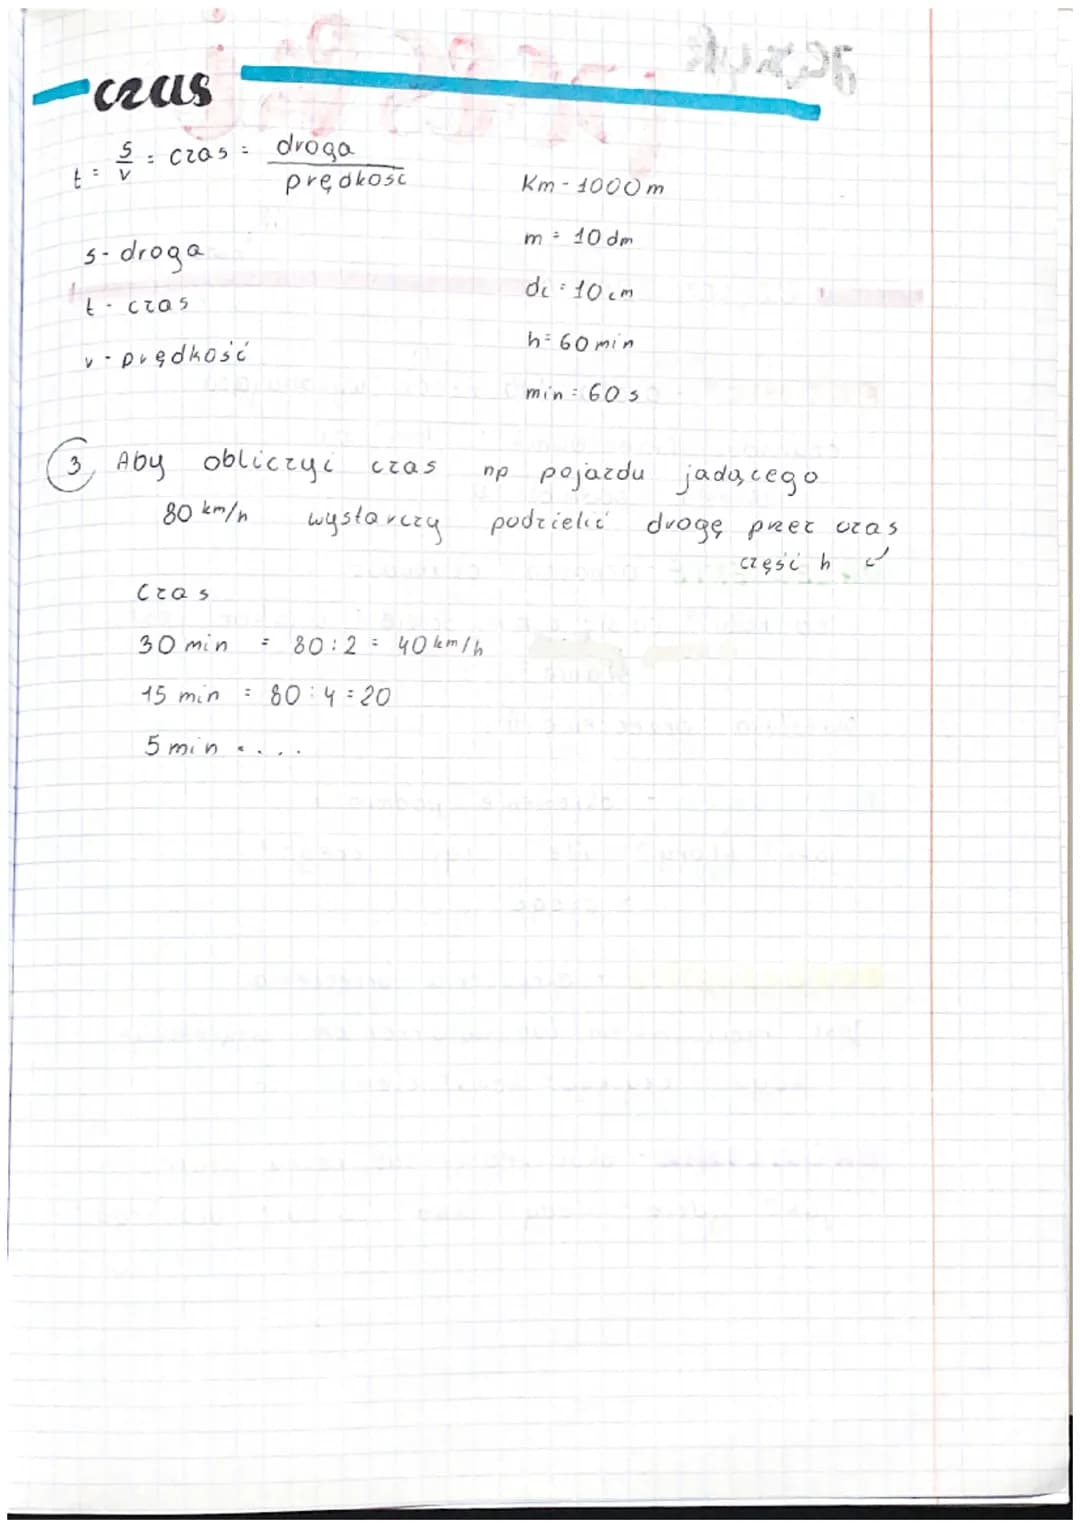 czas
t = s/v = czas = droga/prędkość
s - droga
t - czas
v - prędkość
Km - 1000 m
m = 10 dm
dc = 10 cm
h = 60 min
min = 60 s
3, Aby obliczyć czas np pojazdu jadącego
80 km/h wystarczy podzielić drogę przez czas
część h
Czas
30 min = 80 : 2 = 40 km/h
15 min = 80 : 4 = 20
5 min ....